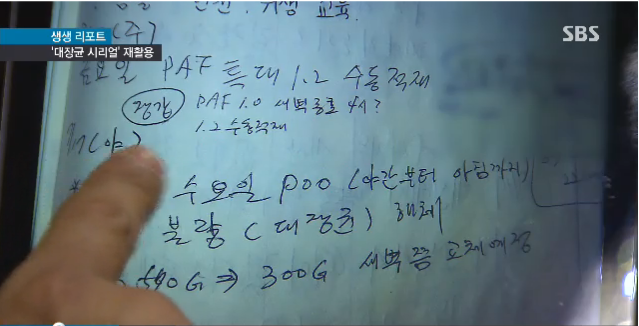 생생 리포트
'대장균 시리얼' 재활용
SBS
안전. 위생 교육.
(주)
토요일 PAF 특대 1.2 수동적재
장갑 PAF 1.0 새벽종료
1.2 수동적재
(야)
수요일 POO (야간부터 아침까지)
불량 (대장균) 해체
540G ⇒ 300G 새벽 쯤 교체예정